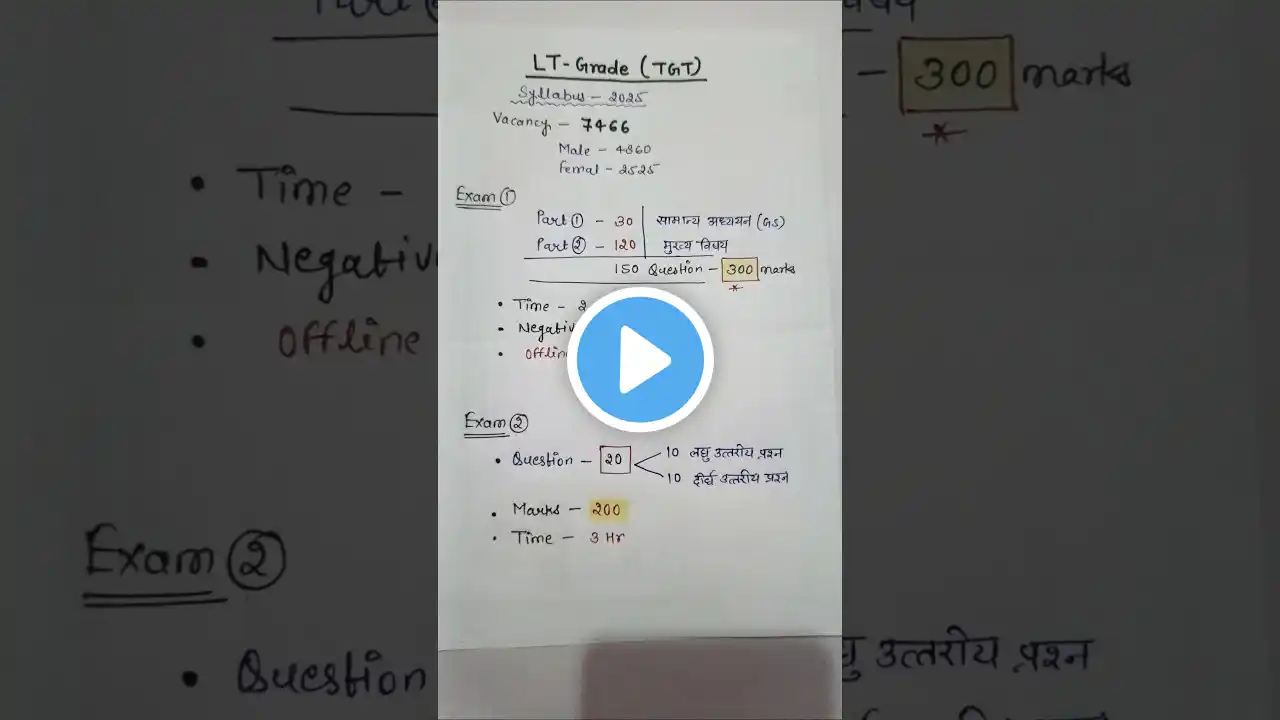 LT-Grade (TGT)
Syllabus - 2025
Vacancy - 7466
Male - 4860
Femal - 2525
Exam ①
Part ① - 30 | सामान्य अध्ययन (GS)
Part ② - 120 | मुख्य विषय
150 Question - 300 marks
• Time - 2
• Negativ
• Offlin
Exam ②
• Question - 20
10 लघु उत्तरीय प्रश्न
10 दीर्घ उत्तरीय प्रश्न
• Marks - 200
• Time - 3 Hr
- 300 marks
• Time -
• Negativ
• Offline
Exam ②
• Question
उत्तरीय प्रश्न